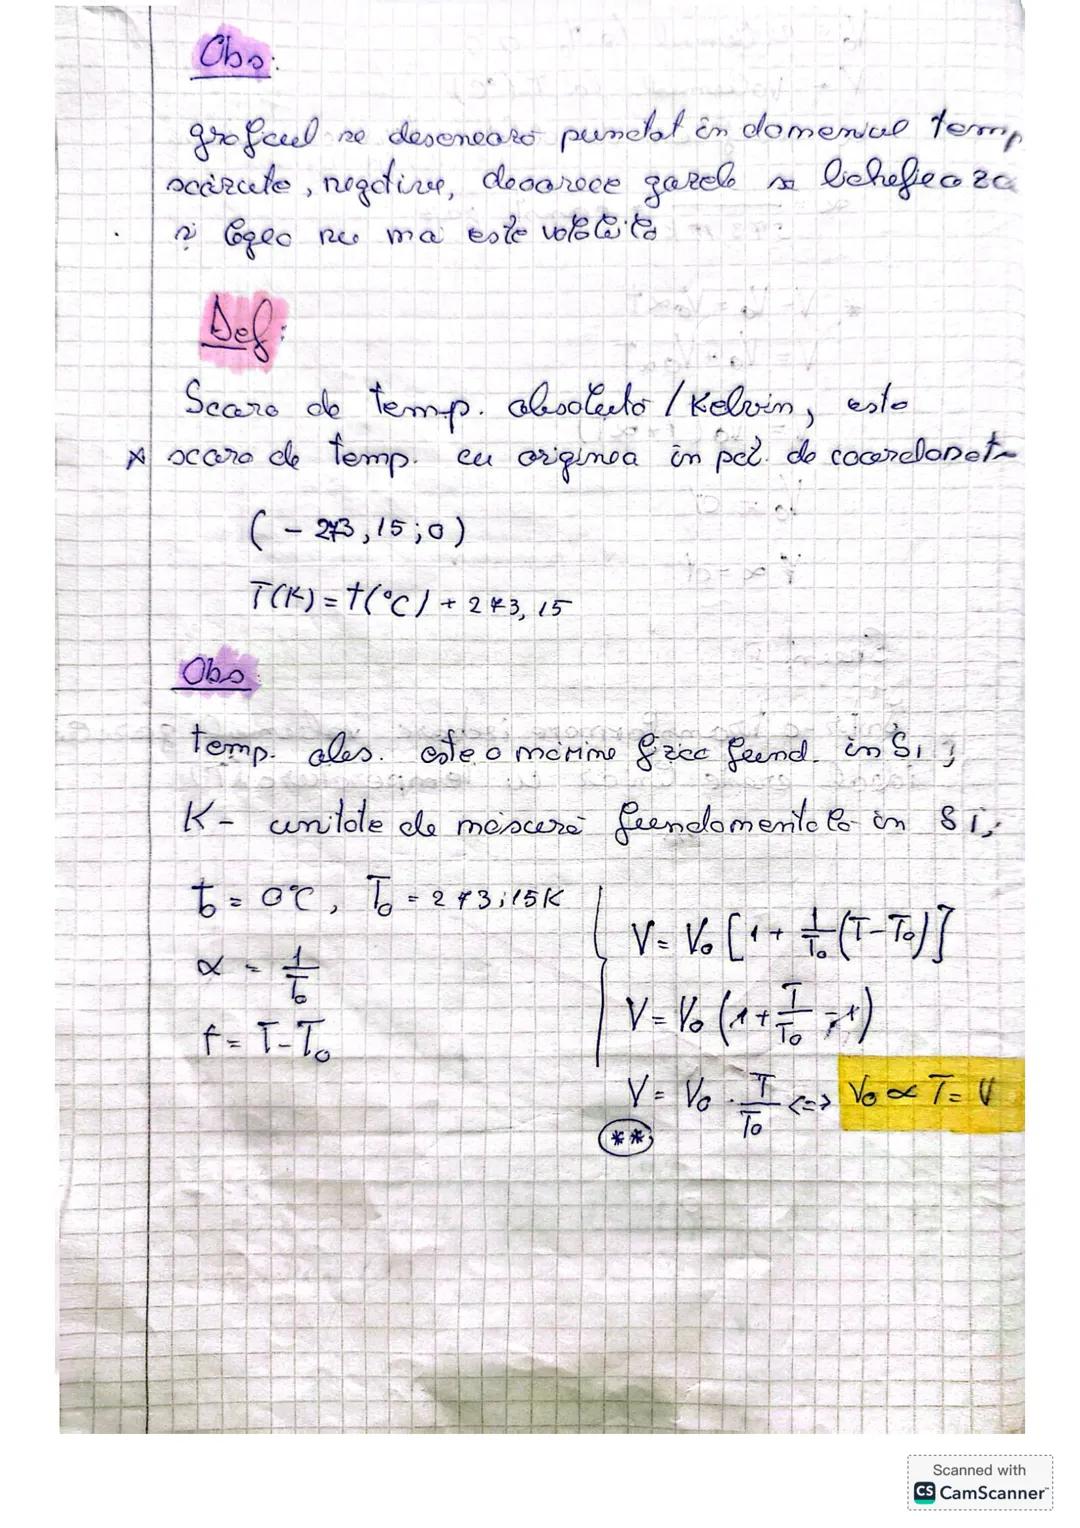 Obs:
graficul se desenează punctat în domeniul temp
scăzute, negative, deoarece gazele se lichefiază
și legea nu mai este valabilă
Def:
Scara de temp. absolută / Kelvin, este
scara de temp. cu originea în pct. de coordonate
(-273,15;0)
T(K) = t(°C) + 273,15
Obs:
temp. abs. este o mărime fizică fund. în Si;
K- unitate de măsură fundamentală în Si;
t = 0°C, T₀ = 273,15K
α = 1/T₀
t = T-T₀
V = V₀ [1 + 1/T₀ (T-T₀)]
V = V₀ (1 + T/T₀ - 1)
V = V₀ · T/T₀ <=> V₀ α T = V
**
Scanned with
CS CamScanner